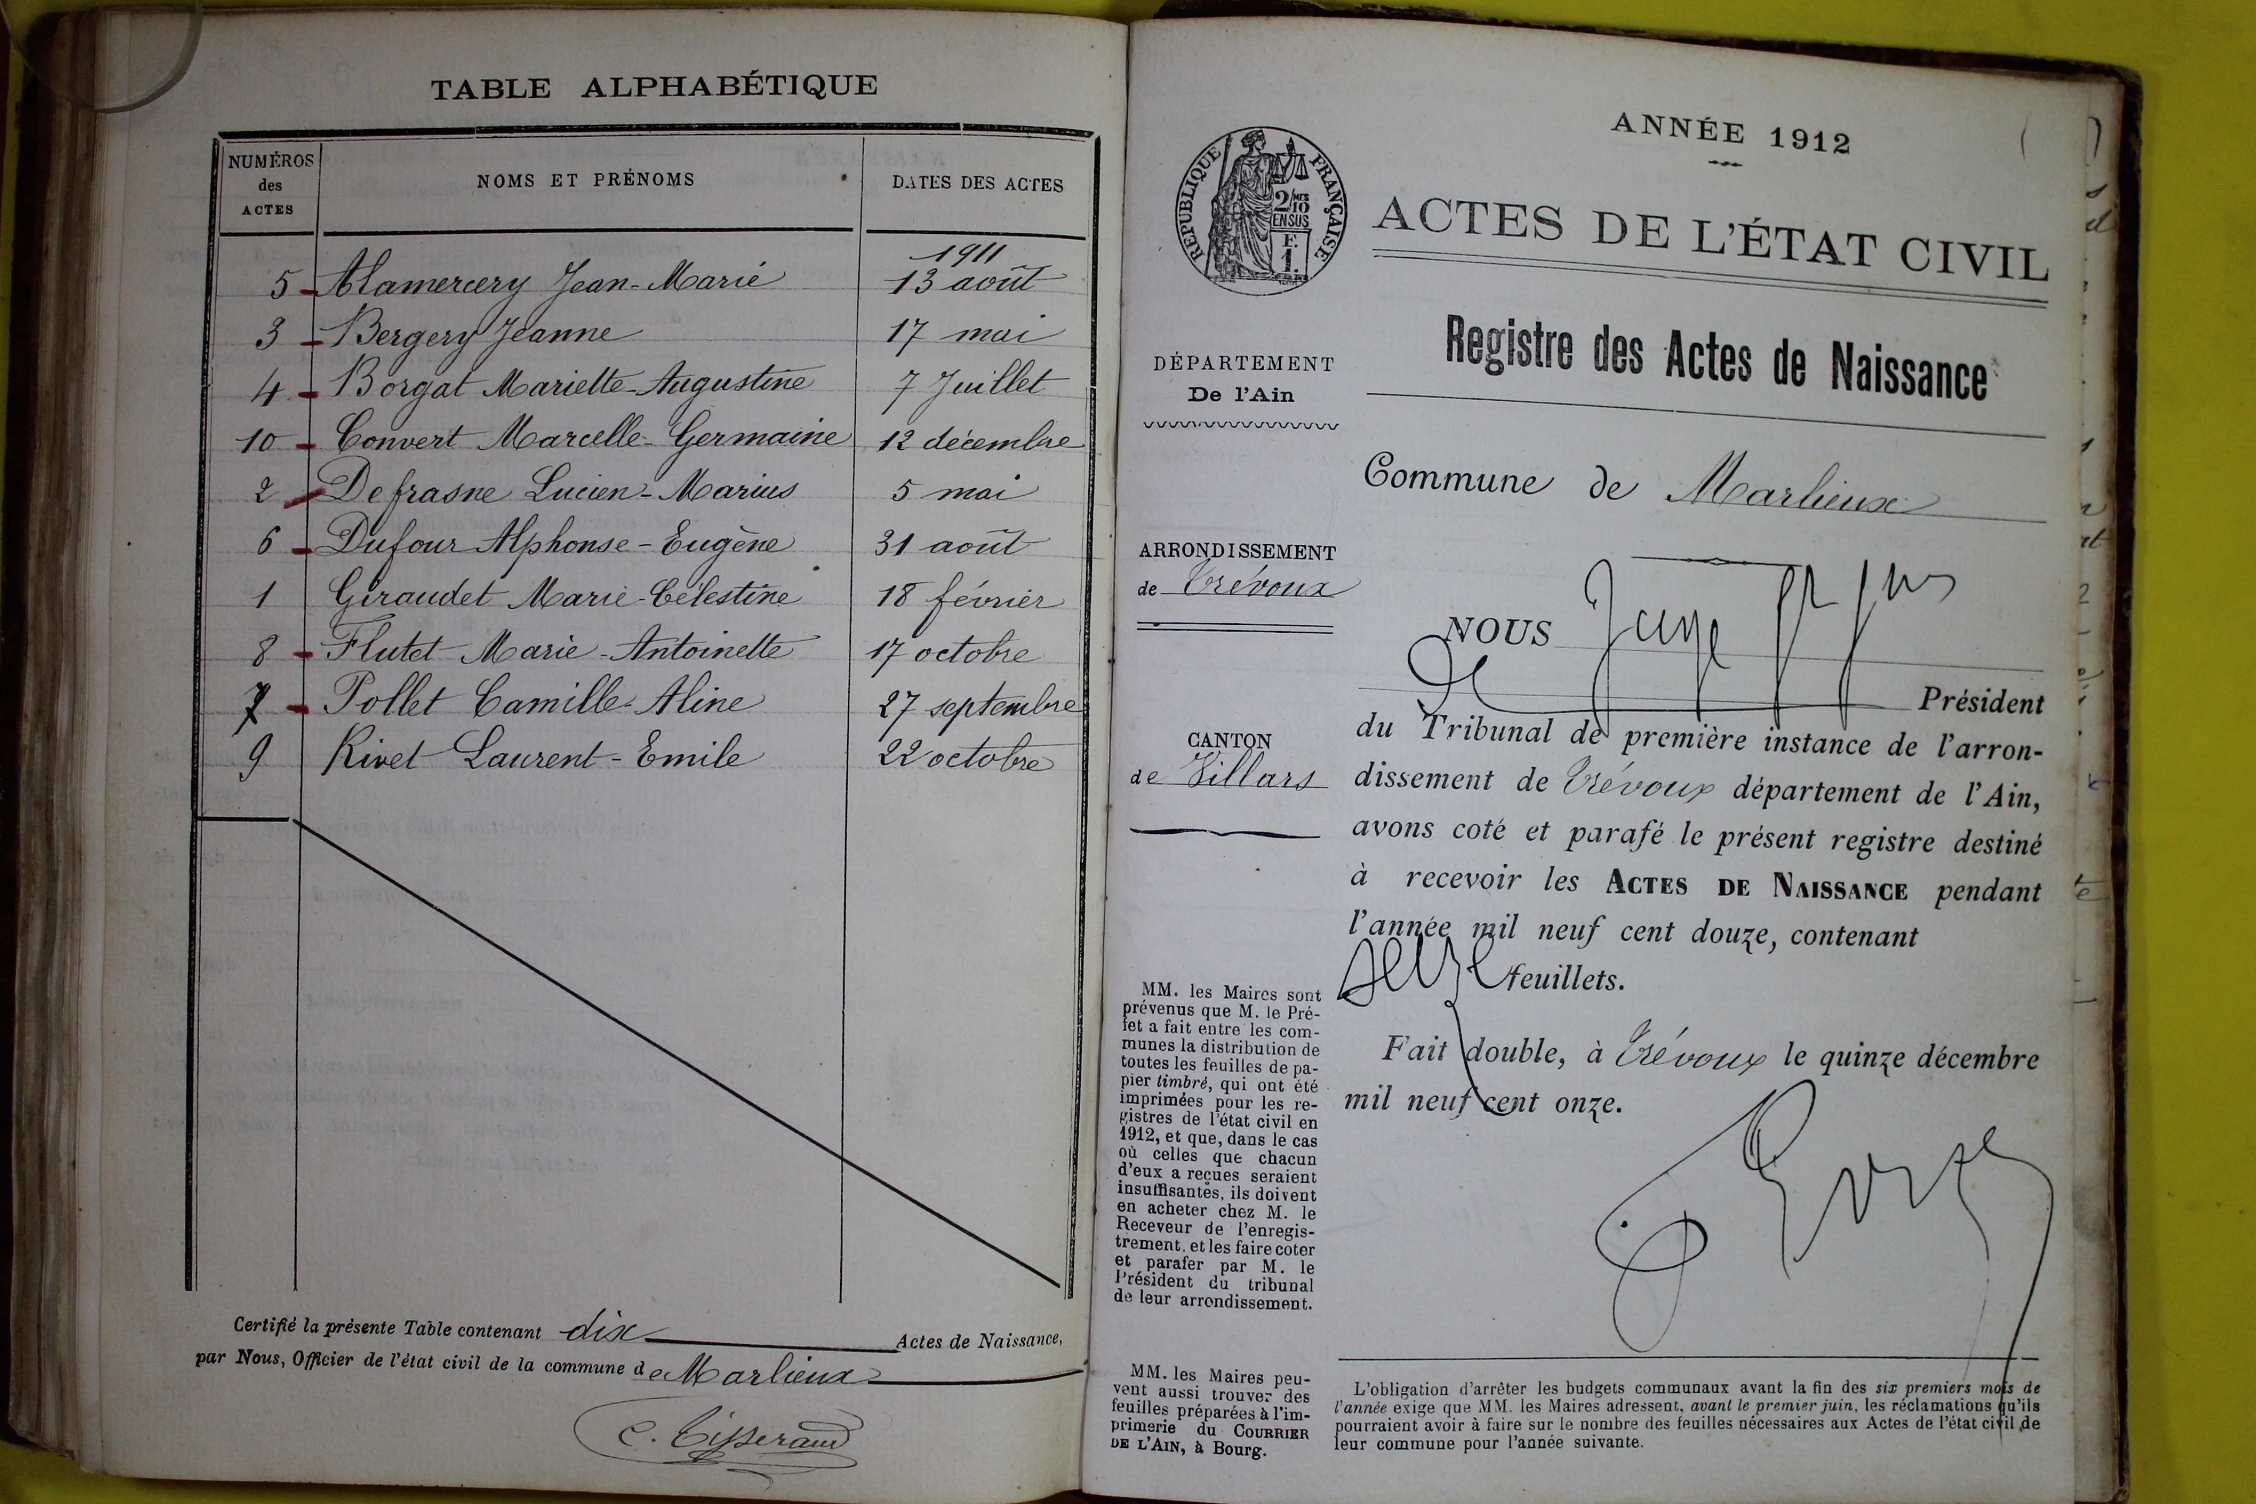 TABLE ALPHABÉTIQUE
NUMÉROS des ACTES
NOMS ET PRÉNOMS
DATES DES ACTES
1911
5 Alamercery Jean-Marie 13 août
3 Bergery Jeanne 17 mai
4 Borgat Mariette-Augustine 7 Juillet
10 Convert Marcelle-Germaine 12 décembre
2 Defrasne Lucien-Marius 5 mai
6 Dufour Alphonse-Eugène 31 août
1 Giraudet Marie-Célestine 18 février
8 Flutet Marie-Antoinette 17 octobre
7 Pollet Camille-Aline 27 septembre
9 Rivet Laurent-Emile 22 octobre
Certifié la présente Table contenant dix Actes de Naissance,
par Nous, Officier de l'état civil de la commune de Marlieux
C. Tisserand
ANNÉE 1912
RÉPUBLIQUE FRANÇAISE
2/10 EN SUS
F. 1.
ACTES DE L'ÉTAT CIVIL
Registre des Actes de Naissance
DÉPARTEMENT
De l'Ain
Commune de Marlieux
ARRONDISSEMENT
de Trévoux
CANTON
de Villars
NOUS Juge
Président
du Tribunal de première instance de l'arron-
dissement de Trévoux département de l'Ain,
avons coté et parafé le présent registre destiné
à recevoir les ACTES DE NAISSANCE pendant
l'année mil neuf cent douze, contenant
seize feuillets.
Fait double, à Trévoux le quinze décembre
mil neuf cent onze.
MM. les Maires sont
prévenus que M. le Pré-
fet a fait entre les com-
munes la distribution de
toutes les feuilles de pa-
pier timbré, qui ont été
imprimées pour les re-
gistres de l'état civil en
1912, et que, dans le cas
où celles que chacun
d'eux a reçues seraient
insuffisantes, ils doivent
en acheter chez M. le
Receveur de l'enregis-
trement, et les faire coter
et parafer par M. le
Président du tribunal
de leur arrondissement.
MM. les Maires peu-
vent aussi trouver des
feuilles préparées à l'im-
primerie du COURRIER
DE L'AIN, à Bourg.
L'obligation d'arrêter les budgets communaux avant la fin des six premiers mois de
l'année exige que MM. les Maires adressent, avant le premier juin, les réclamations qu'ils
pourraient avoir à faire sur le nombre des feuilles nécessaires aux Actes de l'état civil de
leur commune pour l'année suivante.